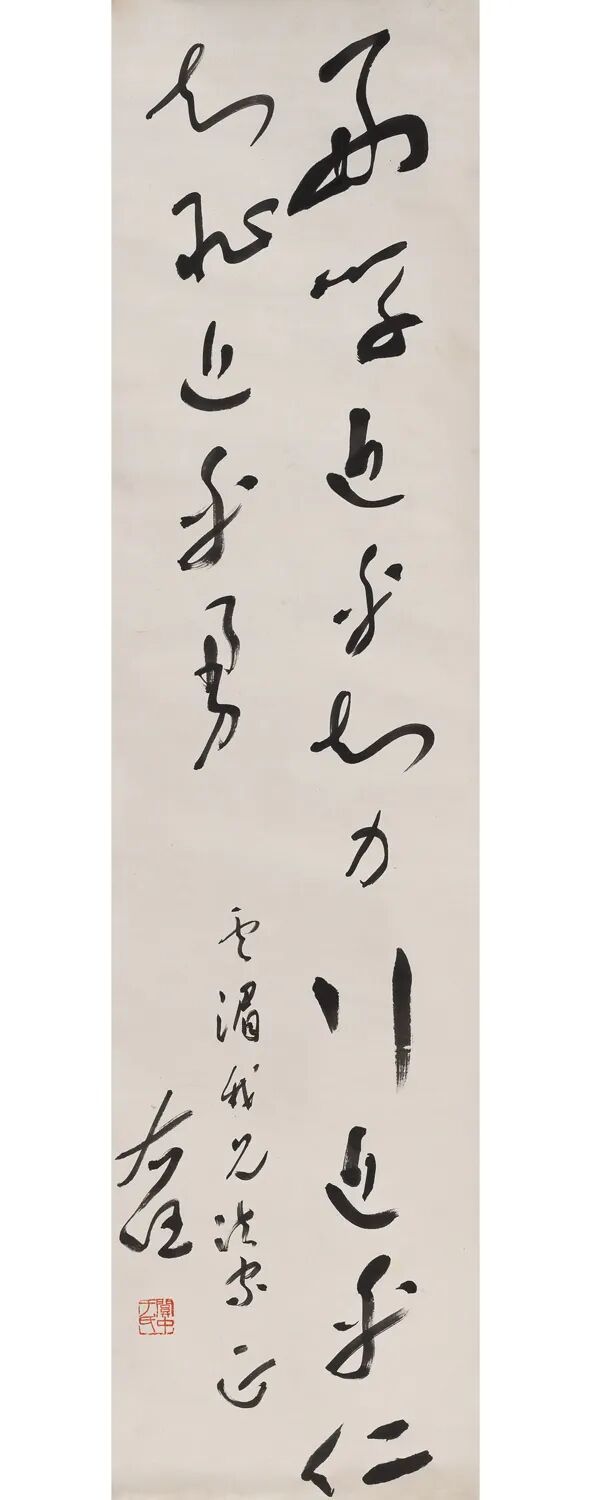 好学近乎知力行近乎仁
知耻近乎勇
云湄我兄法家正
右任
关中于氏